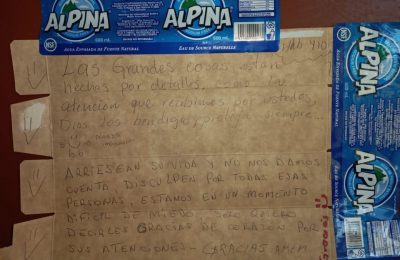 ALPINA
ALPINA
ALPINA
500 ml
500 ml
NSF
AGUA ENVASADA DE FUENTE NATURAL
EAU DE SOURCE NATURELLE
Las Grandes cosas están
hechas por detalles, como la
atención que recibimos por ustedes,
Dios los bendiga y proteja siempre...
SU VIDA Y NO NOS DAMOS
CUENTA DISCULPEN POR TODAS ESAS
PERSONAS, ESTAMOS EN UN MOMENTO
DIFICIL DE MIEDO, SOLO QUIERO
DECIRLES GRACIAS DE CORAZON POR
SUS ATENCIONES - GRACIAS AMEN
ALPINA
ALPINA
ALPINA